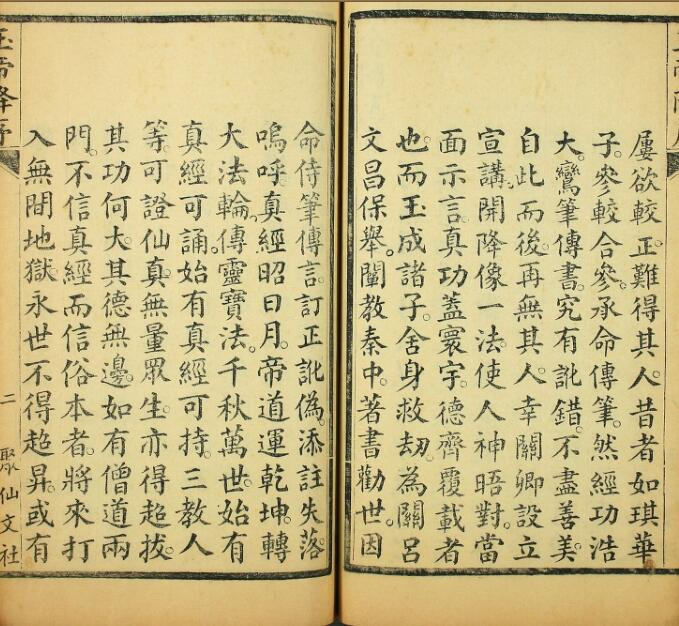 屢欲較正。難得其人。昔者如琪華
子。參較合參。承命傳筆。然經功浩
大。鸞筆傳書。究有訛錯。不盡善美。
自此而後。再無其人。幸關卿設立
宣講。開降像一法。使人神晤對。當
面示言。真功蓋寰宇。德齊覆載者
也。而玉成諸子。舍身救劫。為關呂
文昌保舉。闡教秦中。著書勸世。因
命侍筆傳言。訂正訛偽。添註失落。
嗚呼。真經昭日月。帝道運乾坤。轉
大法輪。傳靈寶法。千秋萬世。始有
真經可誦。始有真經可持。三教人
等。可證仙真。無量眾生。亦得超拔。
其功何大。其德無邊。如有僧道兩
門。不信真經而信俗本者。將來打
入無間地獄。永世不得超昇。或有
玉帝降序
二
聚仙文社